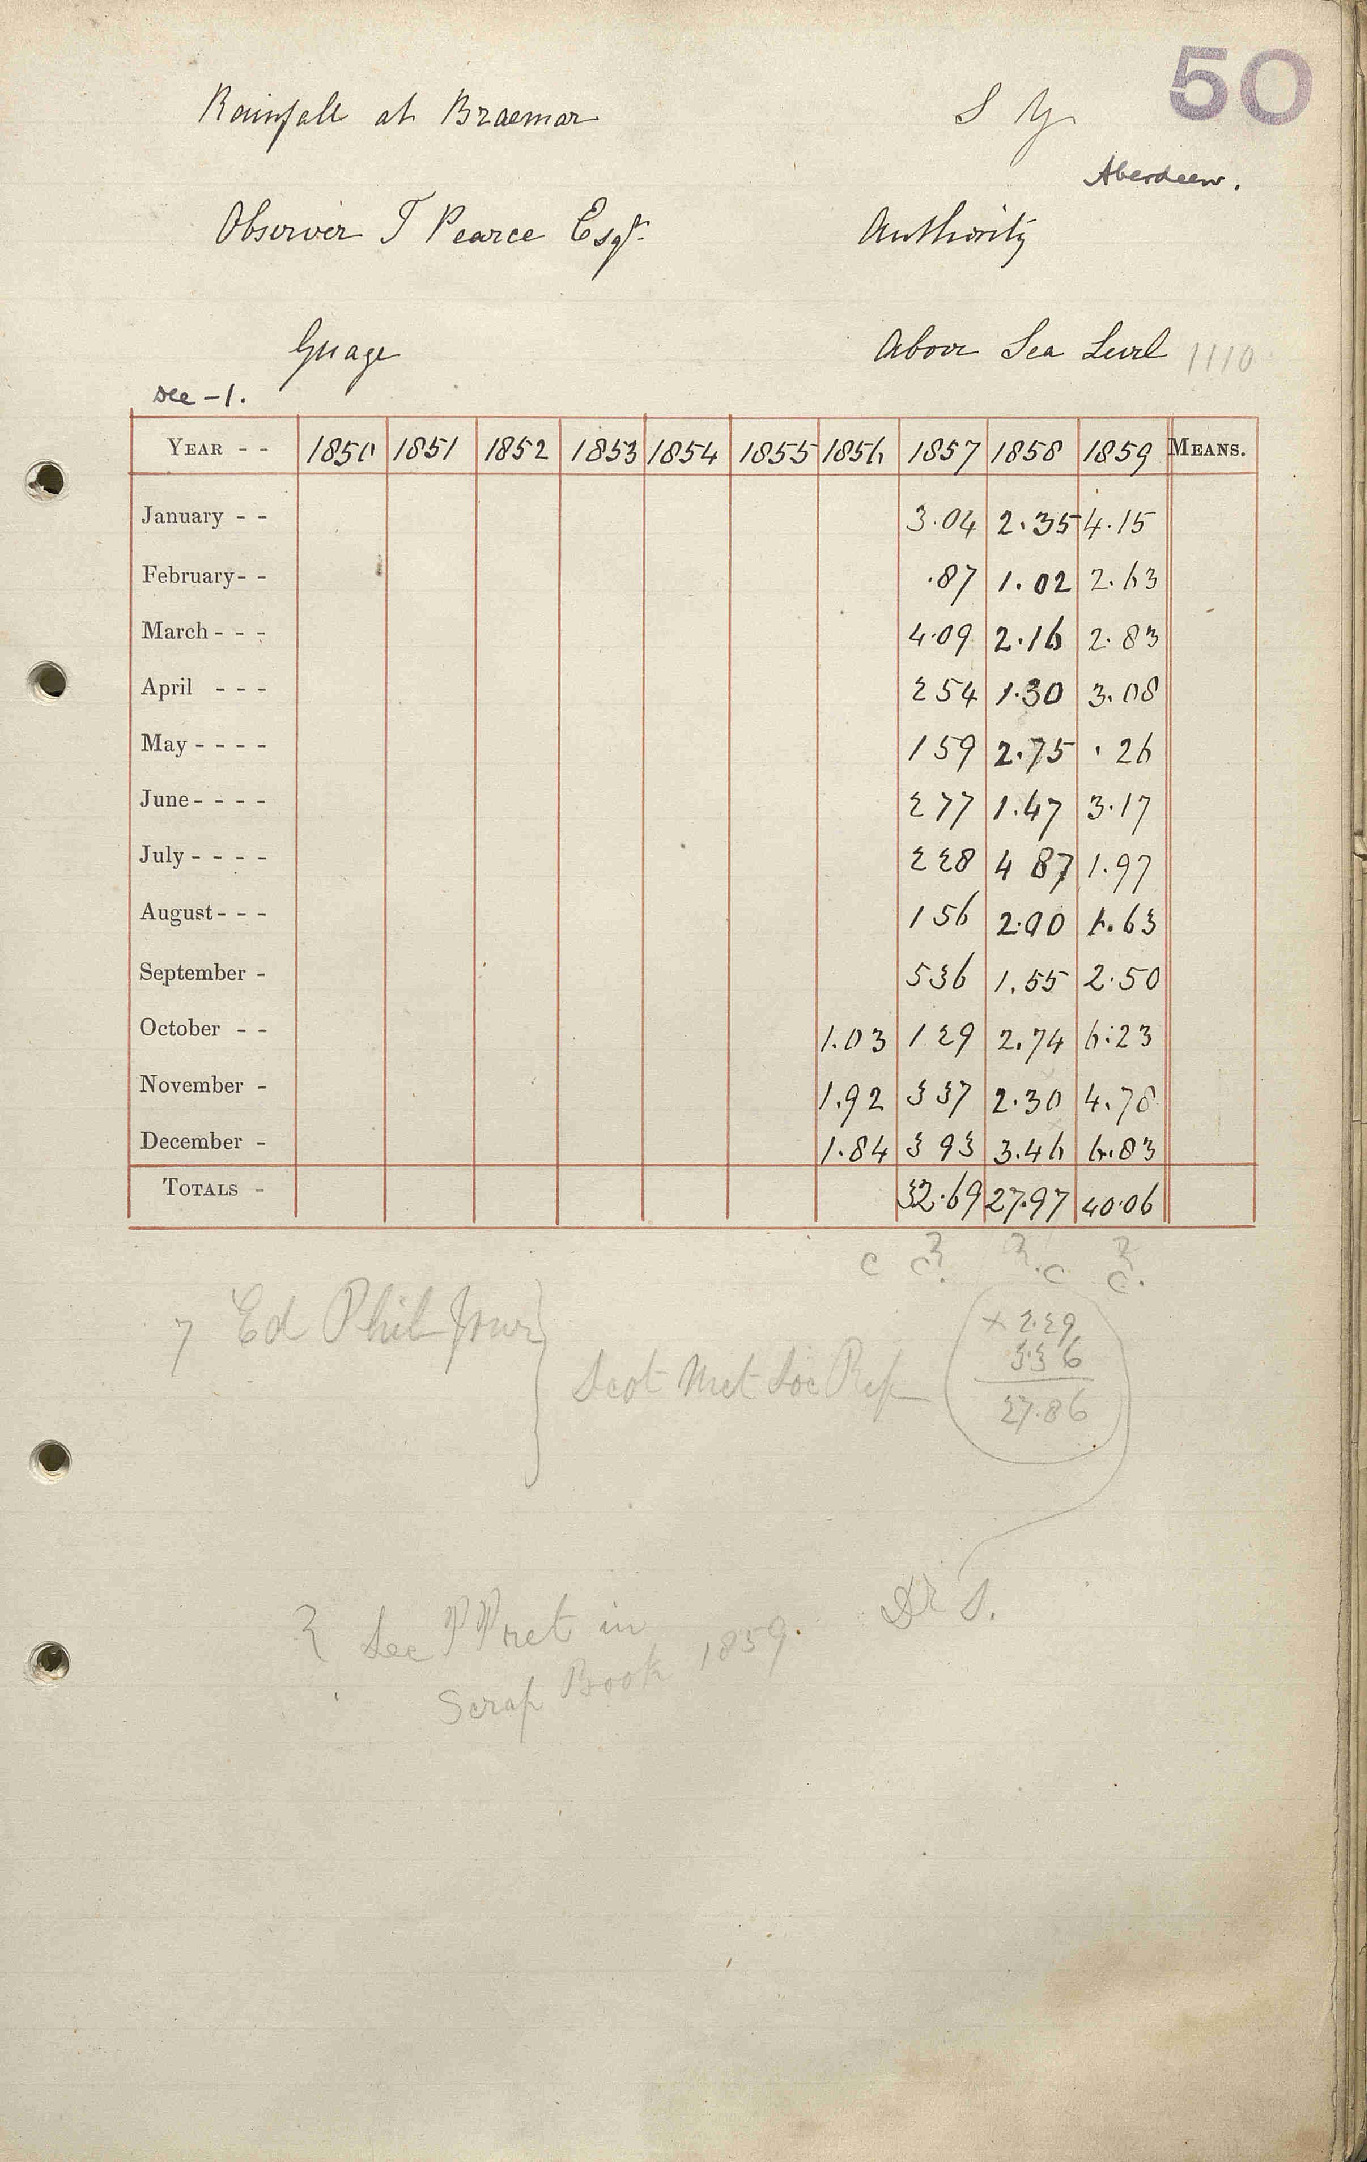 50
Rainfall at Braemar
Aberdeen.
Observer T Pearce Esqr.
Authority
Guage
Above Sea Level 1110
Dee - 1.
YEAR - - 1850 1851 1852 1853 1854 1855 1856 1857 1858 1859 MEANS.
January - - 3.04 2.35 4.15
February - - .87 1.02 2.63
March - - - 4.09 2.16 2.83
April - - - 2 54 1.30 3.08
May - - - - 1 59 2.75 .26
June - - - - 2 77 1.47 3.17
July - - - - 2 28 4 87 1.97
August - - - 1 56 2.00 1.63
September - 5 36 1.55 2.50
October - - 1.03 1 29 2.74 6.23
November - 1.92 3 37 2.30 4.78
December - 1.84 3 93 3.46 6.83
TOTALS - 32.69 27.97 40.06
c c. .c c.
7 Ed Phil Jour }
Scot Met Soc Rep
× 2.29
3.36
27.86
Dr S.
See PP ret in
Scrap Book 1859.